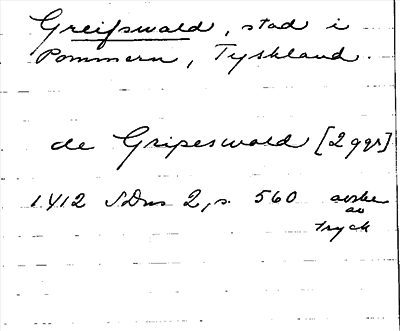 Greifswald, stad i
Pommern, Tyskland.
de Gripeswald [2 ggr]
1412 SDns 2, s. 560 avskr
av
tryck